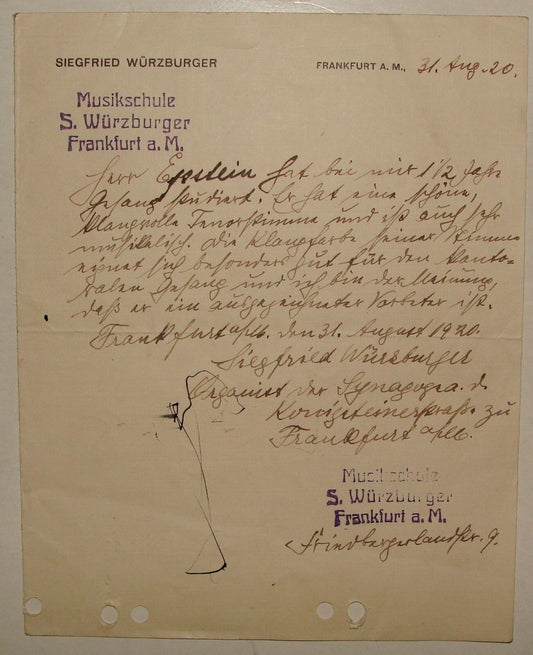 SIEGFRIED WÜRZBURGER
FRANKFURT A. M., 31. Aug. 20.
Musikschule
S. Würzburger
Frankfurt a. M.
Herr Epstein hat bei mir 1 1/2 Jahre
Gesang studiert. Er hat eine schöne,
klangvolle Tenorstimme und ist auch sehr
musikalisch. Die Klangfarbe seiner Stimme
eignet sich besonders gut für den kanto-
ralen Gesang und ich bin der Meinung,
daß er ein ausgezeichneter Vorbeter ist.
Frankfurt a/M. den 31. August 1920.
Siegfried Würzburger
Organist der Synagoga. d.
Königsteinerstraße zu
Frankfurt a/M.
Musikschule
S. Würzburger
Frankfurt a. M.
Friedbergerlandstr. 9.